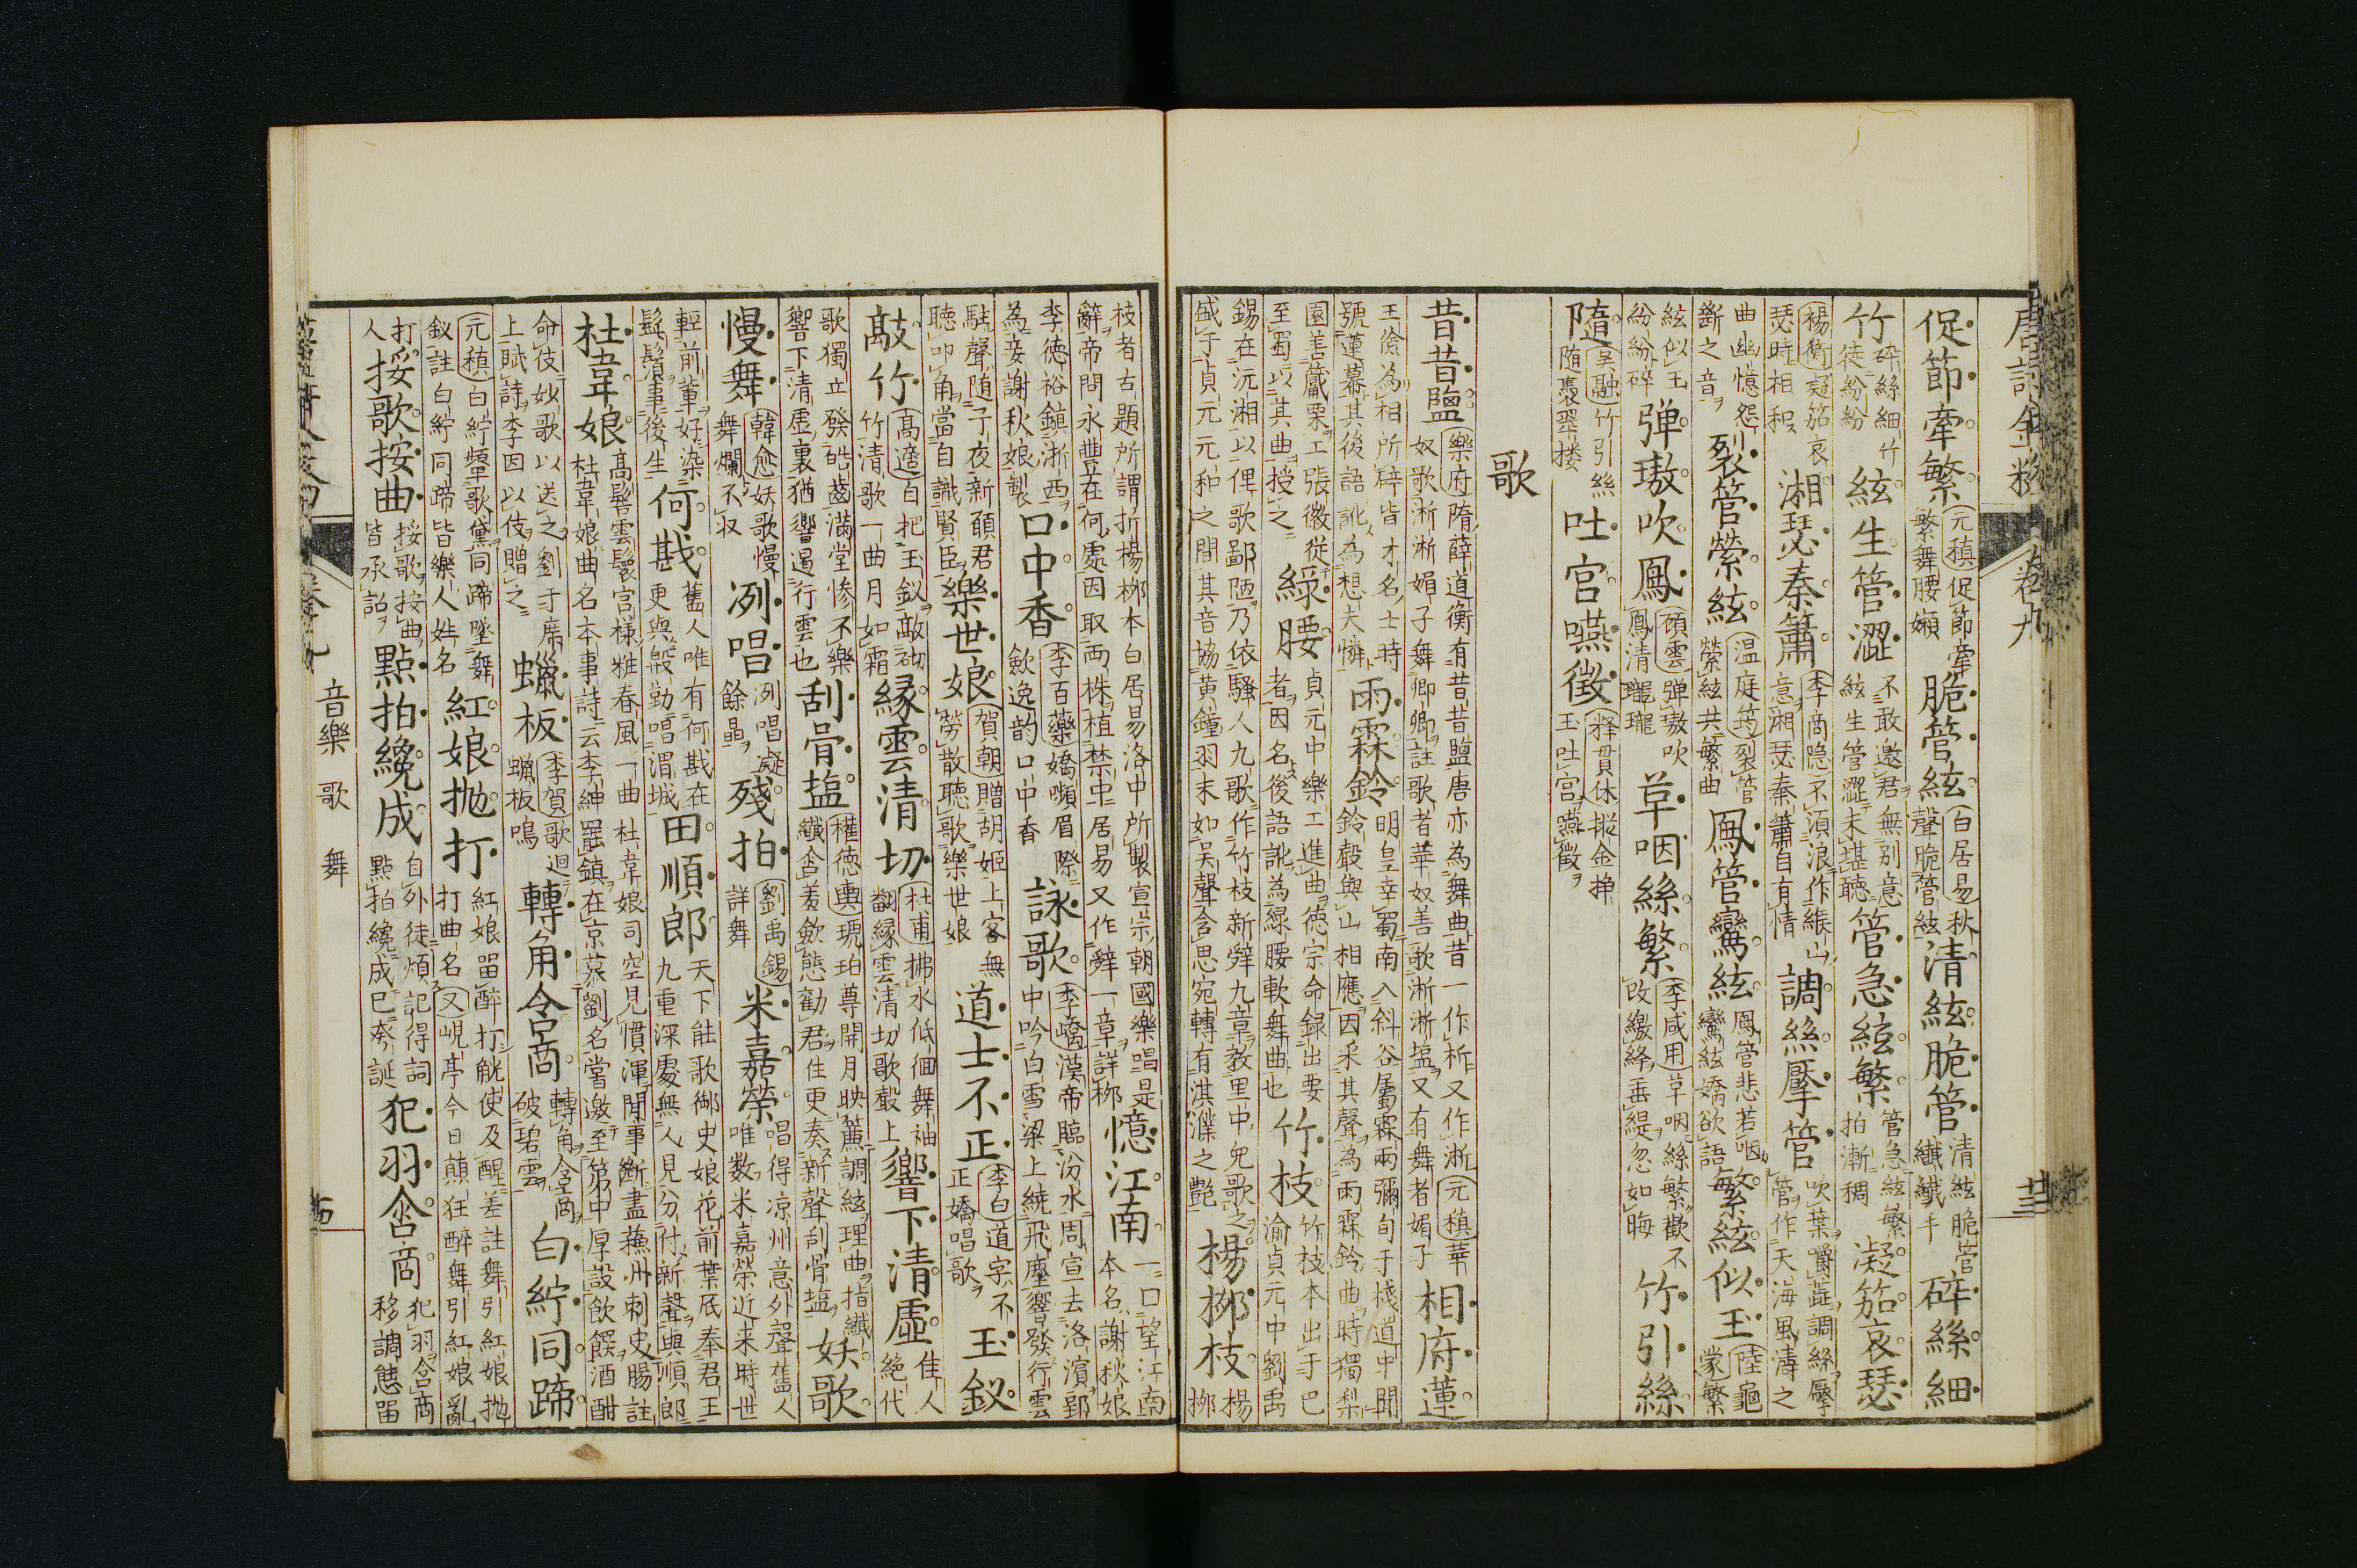 唐詩金粉 卷九 廿三
促節牽繁 元稹促節牽繁舞腰嬾 脆管絃 白居易秋聲脆管絃 清絃脆管 清絃脆管纖纖手 碎絲細
竹 碎絲細竹徒紛紛 絃生管澀 不敢邀君無別意絃生管澀未堪聽 管急絃繁 管急絃繁拍漸稠 凝笳哀瑟
禓衡凝笳哀瑟時相和 湘瑟秦簫 李商隐不須浪作緱山意湘瑟秦簫自有情 調絲擪管 吹葉嚼蕊調絲擪管作天海風濤之
曲幽憶怨斷之音 裂管縈絃 温庭筠裂管縈絃共繁曲 鳳管鸞絃 鳳管悲若咽鸞絃嬌欲語 繁絃似玉 陸龜蒙繁
絃似玉紛紛碎 弾璈吹鳳 顧雲弾璈吹鳳清瓏瓏 草咽絲繁 李咸用草咽絲繁歡不改繳絳垂緹忽如晦 竹引絲
隨 吳融竹引絲随裊翠楼 吐宮嚥徴 释貫休摐金挣玉吐宮嚥徴
歌
昔昔鹽 樂府隋薛道衡有昔昔鹽唐亦為舞曲昔一作析又作淅元稹華奴歌淅淅媚子舞卿卿註歌者華奴善歌淅淅塩又有舞者媚子 相府蓮
王儉為相所辟皆才名士時號蓮幕其後語訛為想夫憐 雨霖鈴 明皇幸蜀南入斜谷屬霖雨彌旬于棧道中聞鈴聲與山相應因采其聲為雨霖鈴曲時獨梨
園善觱栗工張徽從至蜀以其曲授之 緑腰 貞元中樂工進曲徳宗命録出要者因名後語訛為緑腰軟舞曲也 竹枝 竹枝本出于巴渝貞元中劉禹
錫在沅湘以俚歌鄙陋乃依騷人九歌作竹枝新辭九章教里中兒歌之盛于貞元元和之間其音協黄鐘羽末如吳聲含思宛轉有淇濮之艷 楊栁枝 楊栁
枝者古題所謂折楊栁本白居易洛中所製宣宗朝國樂唱是辭帝問永豐在何處因取両株植禁中居易又作辭一章詳栁 憶江南 一曰望江南本名謝秋娘
李徳裕鎮浙西為妾謝秋娘製 口中香 李百藥嬌嚬眉際歛逸韵口中香 詠歌 李嶠漢帝臨汾水周宣去洛濱郢中吟白雪梁上繞飛塵響發行雲
駐聲随子夜新頋君聽叩角當自識賢臣 樂世娘 賀朝贈胡姬上客無勞散聽歌樂世娘 道士不正 李白道字不正嬌唱歌 玉釵
敲竹 髙適自把玉釵敲砌竹清歌一曲月如霜 縁雲清切 杜甫拂水低佪舞袖翻縁雲清切歌聲上 響下清虛 佳人絶代
歌獨立發皓齒滿堂慘不樂響下清虛裏猶響遏行雲也 刮骨塩 權徳輿琥珀尊開月映簾調絃理曲指纖纖含羞歛態勸君住更奏新聲刮骨塩 妖歌
慢舞 韓愈妖歌慢舞爛不収 冽唱 冽唱凝餘晶 殘拍 劉禹錫詳舞 米嘉榮 唱得凉州意外聲舊人唯数米嘉榮近来時世
輕前輩好染髭鬚事後生 何戡 舊人唯有何戡在更與殷勤唱渭城 田順郎 天下能歌御史娘花前葉底奉君王九重深處無人見分付新聲與順郎
杜韋娘 髙髻雲鬟宫樣粧春風一曲杜韋娘司空見慣渾閒事斷盡蘓州刺史腸註杜韋娘曲名本事詩云李紳罷鎮在京慕劉名嘗邀至第中厚設飲饌酒酣
命伎妙歌以送之劉于席上賦詩李因以伎贈之 蠟板 李賀歌迴蠟板鳴 轉角含商 轉角含商破碧雲 白紵同蹄
元稹白紵顰歌黛同蹄墜舞釵註白紵同蹄皆樂人姓名 紅娘抛打 紅娘留醉打觥使及醒差註舞引紅娘抛打曲名又峴亭今日顛狂醉舞引紅娘亂
打人 挼歌按曲 挼歌按曲皆承詔 點拍纔成 自外徒煩記得詞點拍纔成已夸誕 犯羽含商 犯羽含商移調態留
音樂 歌 舞